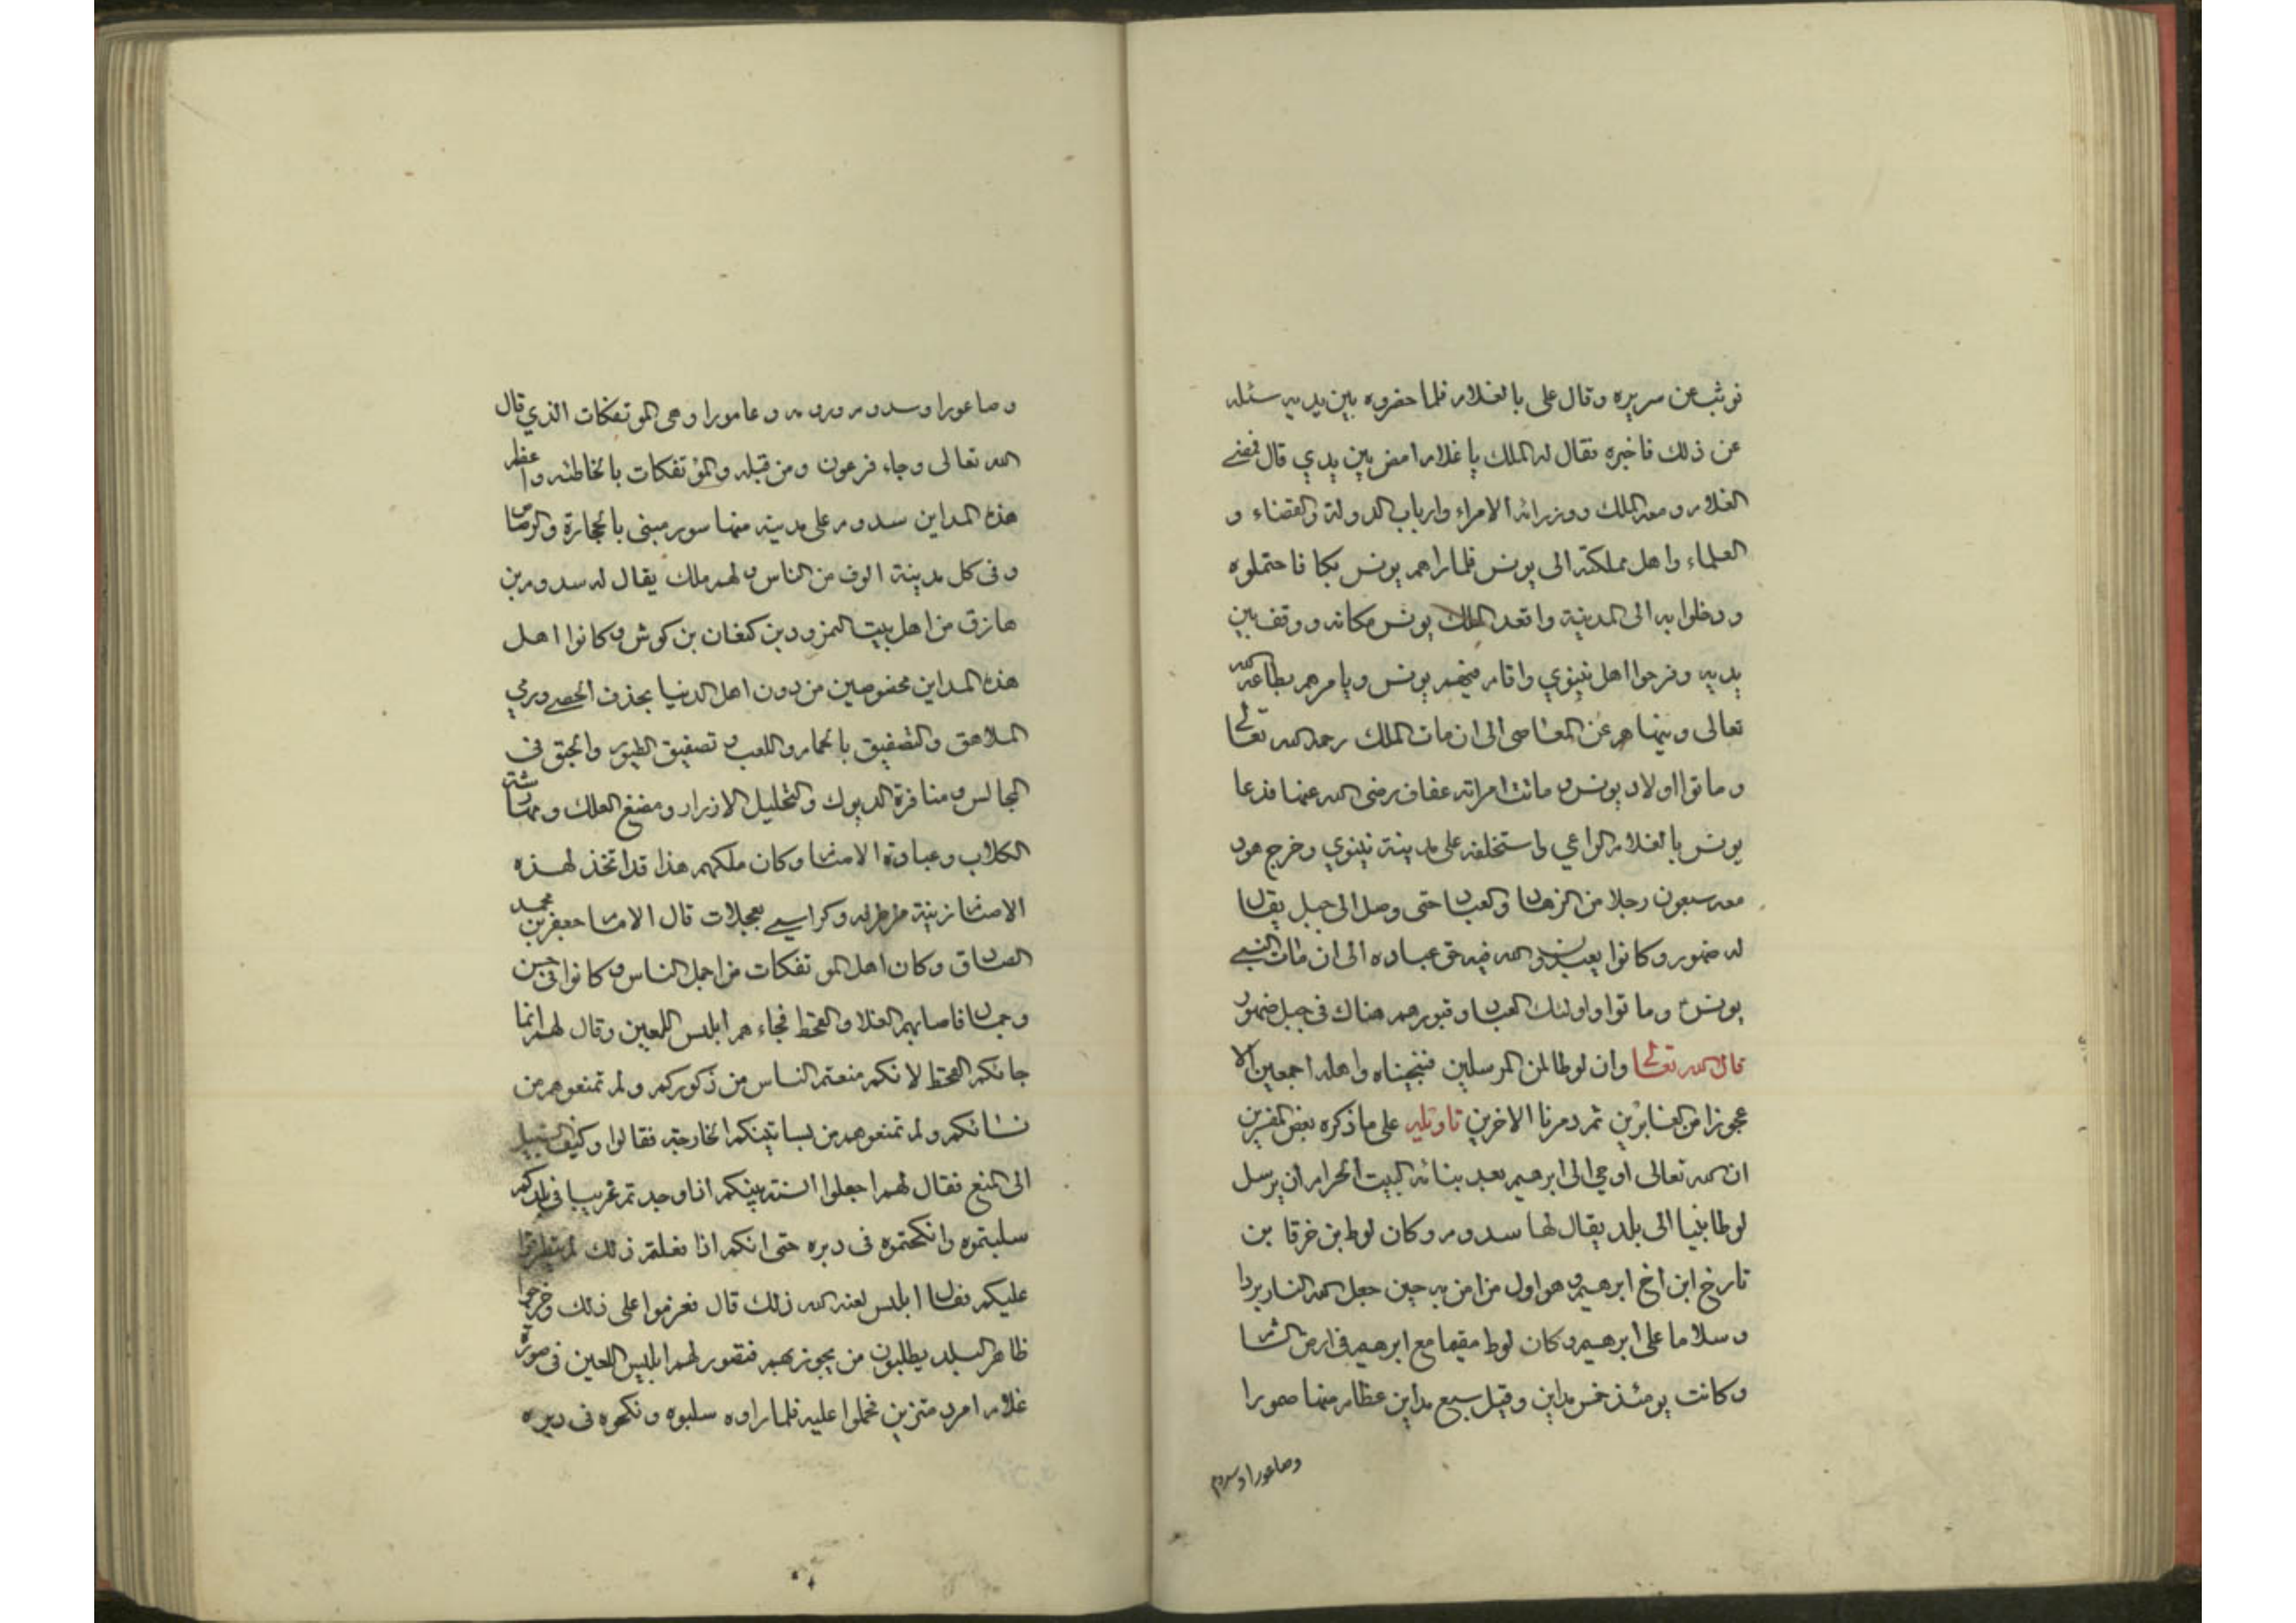 فوثب عن سريره وقال علي بالغلام فلما حضروه بين يديه سئله
عن ذلك فاخبره فقال له الملك يا غلام امض بين يدي قال فمضى
الغلام ومعه الملك ووزرائه الامراء وارباب الدولة والقضاء و
العلماء واهل مملكته الى يونس فلما راهم يونس بكا فاحتملوه
ودخلوا به الى المدينة واقعد الملك يونس مكانه ووقف بين
يديه وفرحوا اهل نينوي واقام فيهم يونس ويامرهم بطاعة الله
تعالى وينهاهم عن المعاصى الى ان مات الملك رحمه الله تعالى
وماتوا اولاد يونس وماتت امراته عفاف رضى الله عنها فدعا
يونس بالغلام الراعي واستخلفه على مدينة نينوي وخرج هو و
معه سبعون رجلا من الزهاد والعباد حتى وصل الى جبل يقال
له ضهور وكانوا يعبدون الله فيه حق عباده الى ان مات النبي
يونس وماتوا واولئك العباد وقبورهم هناك فى جبل ضهور
قال الله تعالى وان لوطا لمن المرسلين فنجيناه واهله اجمعين الا
عجوزا من الغابرين ثم دمرنا الاخرين تاويله على ما ذكره بعض المفسرين
ان الله تعالى اوحي الى ابرهيم بعد بنائه البيت الحرام ان يرسل
لوطا نبيا الى بلد يقال لها سدوم وكان لوط بن خرقا بن
تارخ ابن اخ ابرهيم وهو اول من امن به حين جعل الله النار بردا
وسلاما على ابرهيم وكان لوط مقيما مع ابرهيم فى ارض الشام
وكانت يومئذ خمس مداين وقيل سبع مداين عظام منها صمورا
وصاعورا وسدوم
وصاعورا وسدوم ودومه وعامورا وهى الموتفكات الذي قال
الله تعالى وجاء فرعون ومن قبله والمؤتفكات بالخاطئه واعظم
هذه المداين سدوم على مدينة منها سور مبنى بالحجارة والرصاص
وفى كل مدينة الوف من الناس ولهم ملك يقال له سدوم بن
هازق من اهل بيت النمرود بن كنعان بن كوش وكانوا اهل
هذه المداين مخصوصين من دون اهل الدنيا بحذف الحصى ورمي
الملاهق والتصفيق بالحمام واللعب وتصفيق الطيور والحبق فى
المجالس ومنافرة الديوك والتخليل الازرار ومضغ العلك ومهارشة
الكلاب وعبادة الاصنام وكان ملكهم هذا قد اتخذ لهذه
الاصنام زينة وكراسي بعجلات قال الامام جعفر بن محمد
الصادق وكان اهل الموتفكات من اجمل الناس وكانوا فى حسن
وجمال فاصابهم الغلا والقحط فجاءهم ابليس اللعين وقال لهم انما
جائكم القحط لانكم منعتم الناس من ذكوركم ولم تمنعوهم من
نسائكم ولم تمنعوهم من بساتينكم الخارجة فقالوا وكيف السبيل
الى المنع فقال لهم اجعلوا السنة بينكم اذا وجدتم غريبا فى بلدكم
سلبتموه وانكحتموه فى دبره حتى انكم اذا فعلتم ذلك لم يتطرقوا
عليكم فقال ابليس لعنه الله ذلك قال فعزموا على ذلك وخرجوا
ظاهر البلد يطلبون من يجوز بهم فتصور لهم ابليس اللعين فى صورة
غلام امرد متزين فحملوا عليه فلما راوه سلبوه ونكحوه فى دبره